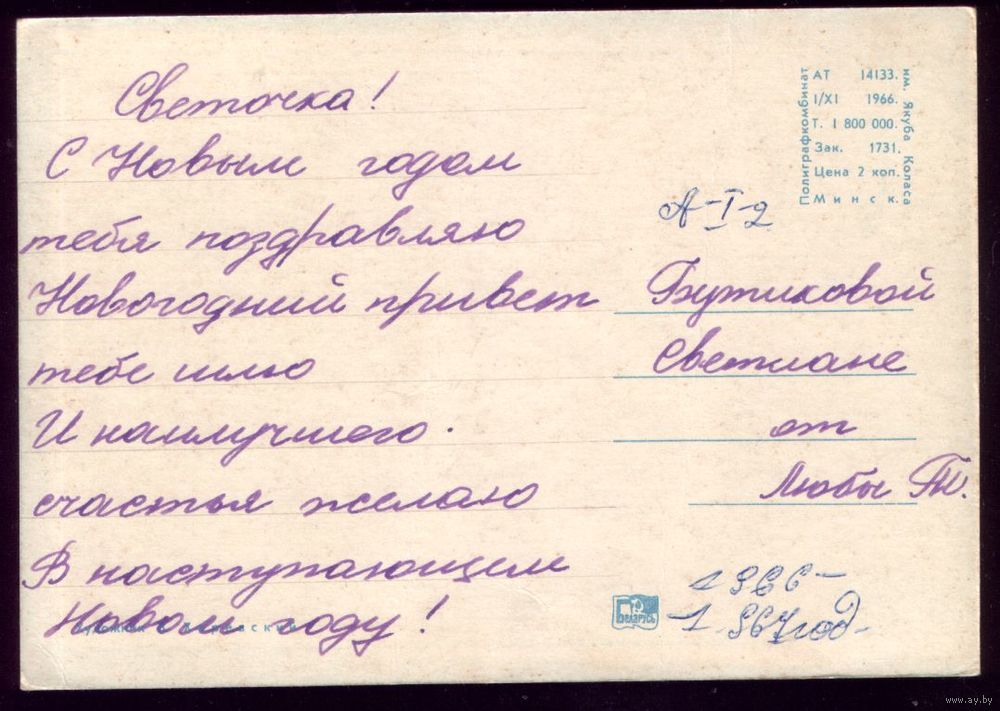 Светочка!
С Новым годом
тебя поздравляю
Новогодний привет
тебе шлю
И наилучшего
счастья желаю
В наступающем
Новом году!
Полиграфкомбинат
АТ 14133.
1/XI 1966.
Т. 1 800 000.
Зак. 1731.
Цена 2 коп.
Минск.
им. Якуба Коласа
А-I-2
Бутиковой
Светлане
от
Любы Т.
БЕЛАРУСЬ
1966-
1967 год
www.ay.by